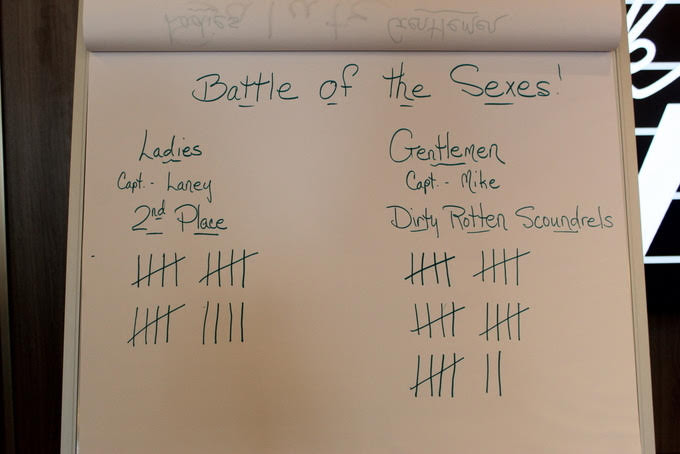 Battle of the Sexes!
Ladies
Capt. - Laney
2nd Place
Gentlemen
Capt. - Mike
Dirty Rotten Scoundrels